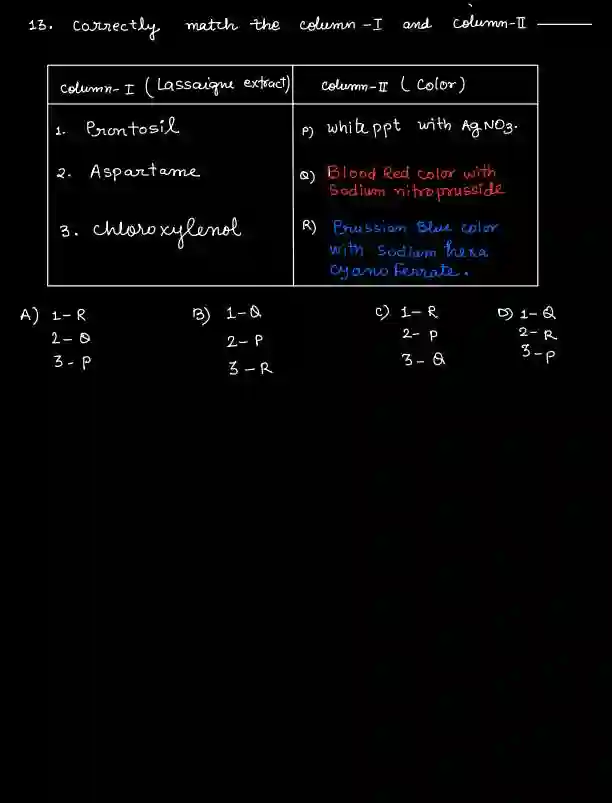 13. Correctly match the column-I and column-II ———
column-I (Lassaigne extract) column-II (Color)
1. Prontosil P) white ppt with AgNO3.
2. Aspartame Q) Blood Red color with
Sodium nitroprusside
3. chloroxylenol R) Prussian Blue color
with sodium hexa
cyano Ferrate.
A) 1-R B) 1-Q C) 1-R D) 1-Q
2-Q 2-P 2-P 2-R
3-P 3-R 3-Q 3-P